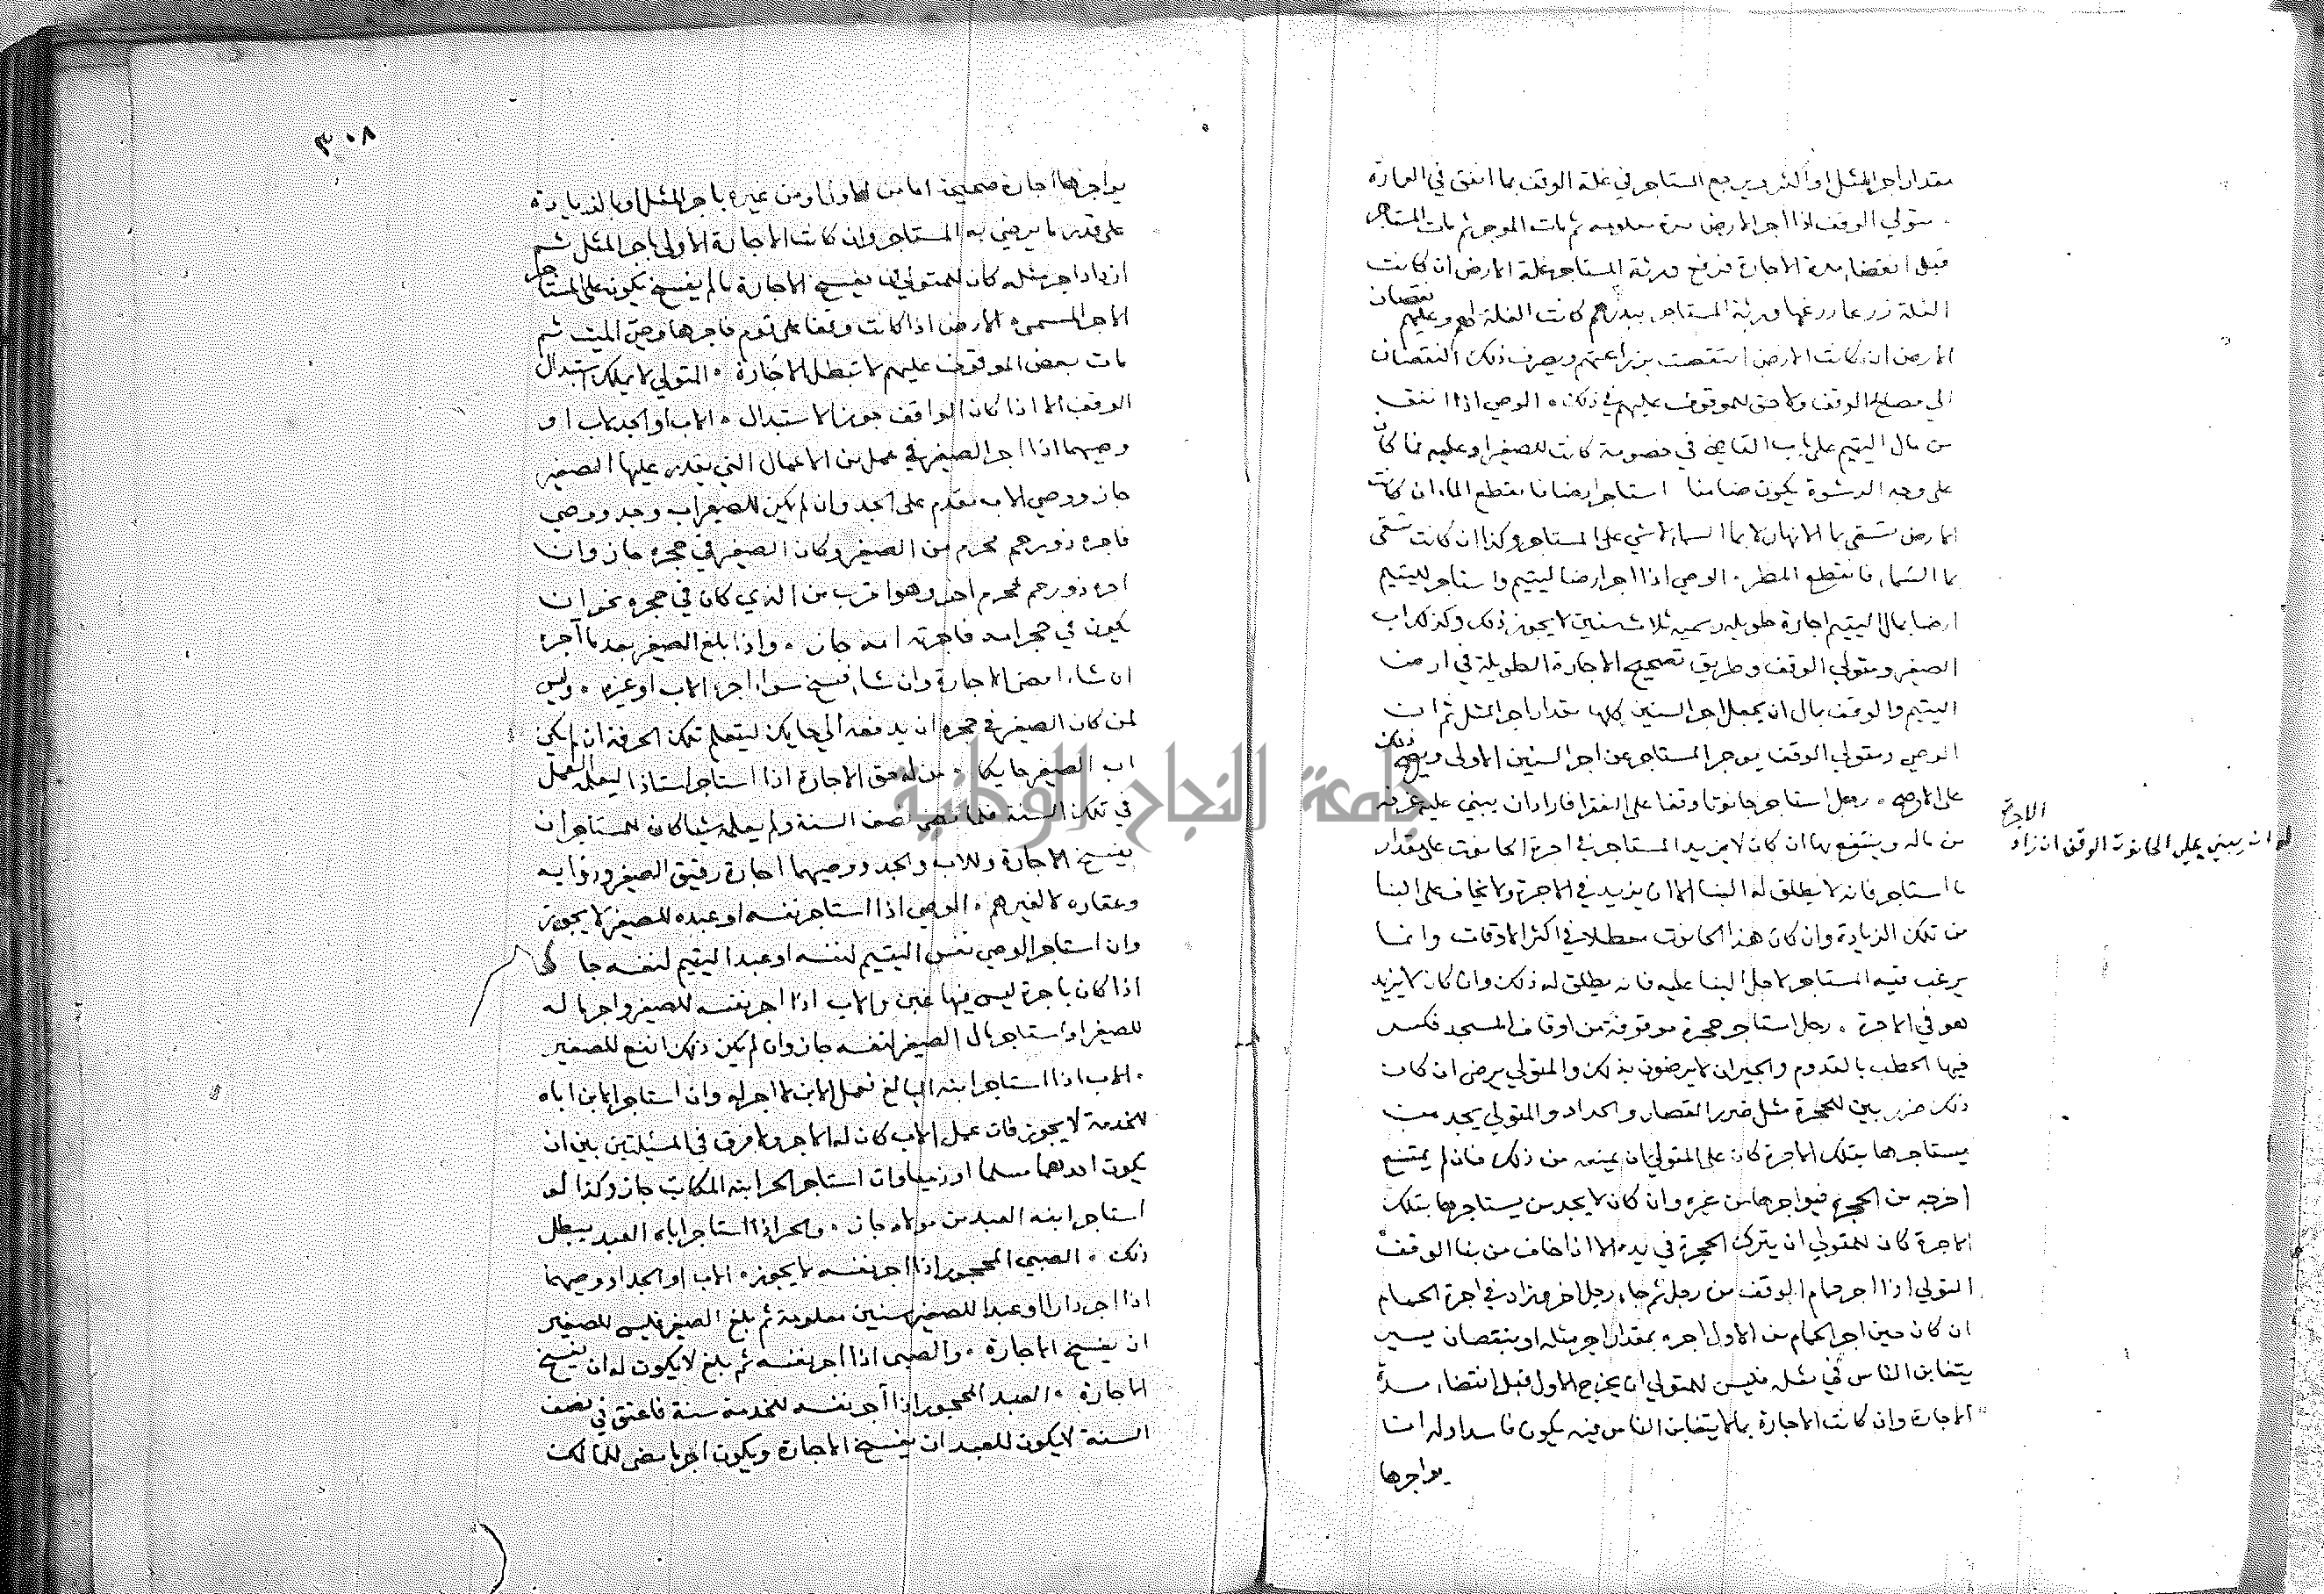 مقدار اجر المثل او اكثر ويرجع المستاجر في غلة الوقف بما انفق في العمارة
متولي الوقف اذا اجر الارض مدة معلومه ثم مات الموجر ثم مات المستاجر
قبل انقضا مدة الاجارة ورثة المستاجر غلة الارض ان كانت
الغلة زرعا زرعها ورثة المستاجر ببذرهم كانت الغلة لهم وعليهم نقصان
الارض ان كانت الارض انتقصت بزراعتهم ويصرف ذلك النقصان
الى مصالح الوقف ولا حق للموقوف عليهم في ذلك الوصي اذا انفق
من مال اليتيم على باب القاضي في خصومة كانت للصغير او عليه فما كان
على وجه الرشوة يكون ضامنا استاجر ارضا فانقطع الما ان كانت
الارض تسقى بما الانهار لا بما السما لا شي على المستاجر وكذا ان كانت تسقى
بما السما فانقطع المطر الوصي اذا اجر ارضا لليتيم واستاجر لليتيم
ارضا بمال اليتيم اجارة طويله رسمية ثلاث سنين لا يجوز ذلك وكذلك اب
الصغير ومتولي الوقف وطريق تصحيح الاجارة الطويلة في ارض
اليتيم والوقف بمال ان يجعل اجر السنين كلها مقدار اجر المثل ثم ان
الوصي ومتولي الوقف يوجر المستاجر عن اجر السنين الاولى ويصح ذلك
على الاصح رجل استاجر حانوتا وقفا على الفقرا فاراد ان يبني عليه غرفة
من ماله وينتفع بها ان كان لا يزيد المستاجر في اجرة الحانوت على مقدار
ما استاجر فانه لا يطلق له البنا الا ان يزيد في الاجرة ولا يخاف على البنا
من تلك الزيادة وان كان هذا الحانوت معطلا في اكثر الاوقات وانما
يرغب فيه المستاجر لاجل البنا عليه فانه يطلق له ذلك وان كان لا يزيد
هو في الاجرة رجل استاجر حجرة موقوفة من اوقاف المسجد فكسر
فيها الحطب بالقدوم والجيران لا يرضون بذلك والمتولي يرضى ان كان
ذلك ضرر بين للحجرة مثل ضرر القصار والحداد والمتولي يجد من
يستاجرها بتلك الاجرة كان على المتولي ان يمنعه من ذلك فان لم يمتنع
اخرجه من الحجرة فيواجرها من غيره وان كان لا يجد من يستاجرها بتلك
الاجرة كان للمتولي ان يترك الحجرة في يده الا اذا خاف من بنا الوقف
المتولي اذا اجر حمام الوقف من رجل ثم جاء رجل اخر وزاد في اجرة الحمام
ان كان حين اجر الحمام من الاول اجره بمقدار اجر مثله او بنقصان يسير
يتغابن الناس في مثله فليس للمتولي ان يخرج الاول قبل انقضاء مدة
الاجارة وان كانت الاجارة بما لا يتغابن الناس فيه يكون فاسدا وله ان
يواجرها
الاجرة
له ان يبني على الحانوت الوقف ان زاد
٣٠٨
يواجرها اجارة صحيحة اما من الاول او من غيره باجر المثل او بالزيادة
على قدر ما يرضى به المستاجر وان كانت الاجارة الاولى باجر المثل ثم
ازداد اجر مثله كان للمتولي ان يفسخ الاجارة ما لم يفسخ يكون على المستاجر
الاجر المسمى الارض اذا كانت وقفا على قوم فاجرها وصي الميت ثم
مات بعض الموقوف عليهم لا تبطل الاجارة المتولي لا يملك استبدال
الوقف الا اذا كان الواقف جوز الاستبدال الاب او الجد لاب او
وصيهما اذا اجر الصغير في عمل من الاعمال التي يقدر عليها الصغير
جاز ووصي الاب مقدم على الجد وان لم يكن للصغير اب وجد ووصي
فاجره ذو رحم محرم من الصغير وكان الصغير في حجره جاز وان
اجره ذو رحم محرم اخر وهو اقرب من الذي كان في حجره نحو ان
يكون في حجر امه جاز واذا بلغ الصغير بعد ما اجره
ان شا امضى الاجارة وان شا فسخ سواء اجره الاب او غيره وليس
لمن كان الصغير في حجره ان يدفعه الى حايك ليتعلم تلك الحرفة ان لم يكن
اب الصغير حايكا من له حق الاجارة اذا استاجر استاذا ليعلمه العمل
في تلك السنة فلما مضى نصف السنة ولم يعلمه شيا كان للمستاجر ان
يفسخ الاجارة وللاب والجد ووصيهما اجارة رقيق الصغير ودوابه
وعقاره لا لغيرهم الوصي اذا استاجر نفسه او عبده للصغير لا يجوز
وان استاجر الوصي نفس اليتيم لنفسه او عبد اليتيم لنفسه جاز
اذا كان باجرة ليس فيها غبن والاب اذا اجر نفسه للصغير واجر ماله
للصغير او استاجر مال الصغير لنفسه جاز وان لم يكن ذلك انفع للصغير
الاب اذا استاجر ابنه البالغ فعمل الابن لا اجر له وان استاجر الابن اباه
للخدمة لا يجوز فان عمل الاب كان له الاجر ولا فرق في المسئلتين بين ان
يكون احدهما مسلما او ذميا وان استاجر الحر ابنه المكاتب جاز وكذا لو
استاجر ابنه العبد من مولاه جاز والحر اذا استاجر اباه العبد يبطل
ذلك الصبي المحجور اذا اجر نفسه لا يجوز الاب او الجد او وصيهما
اذا اجر دارا او عبدا للصغير سنين معلومة ثم بلغ الصغير فليس للصغير
ان يفسخ الاجارة والصبي اذا اجر نفسه ثم بلغ لا يكون له ان يفسخ
الاجارة العبد المحجور اذا آجر نفسه للخدمة سنة فاعتق في نصف
السنة لا يكون للعبد ان يفسخ الاجارة ويكون اجر ما مضى للمالك
جامعة النجاح الوطنية